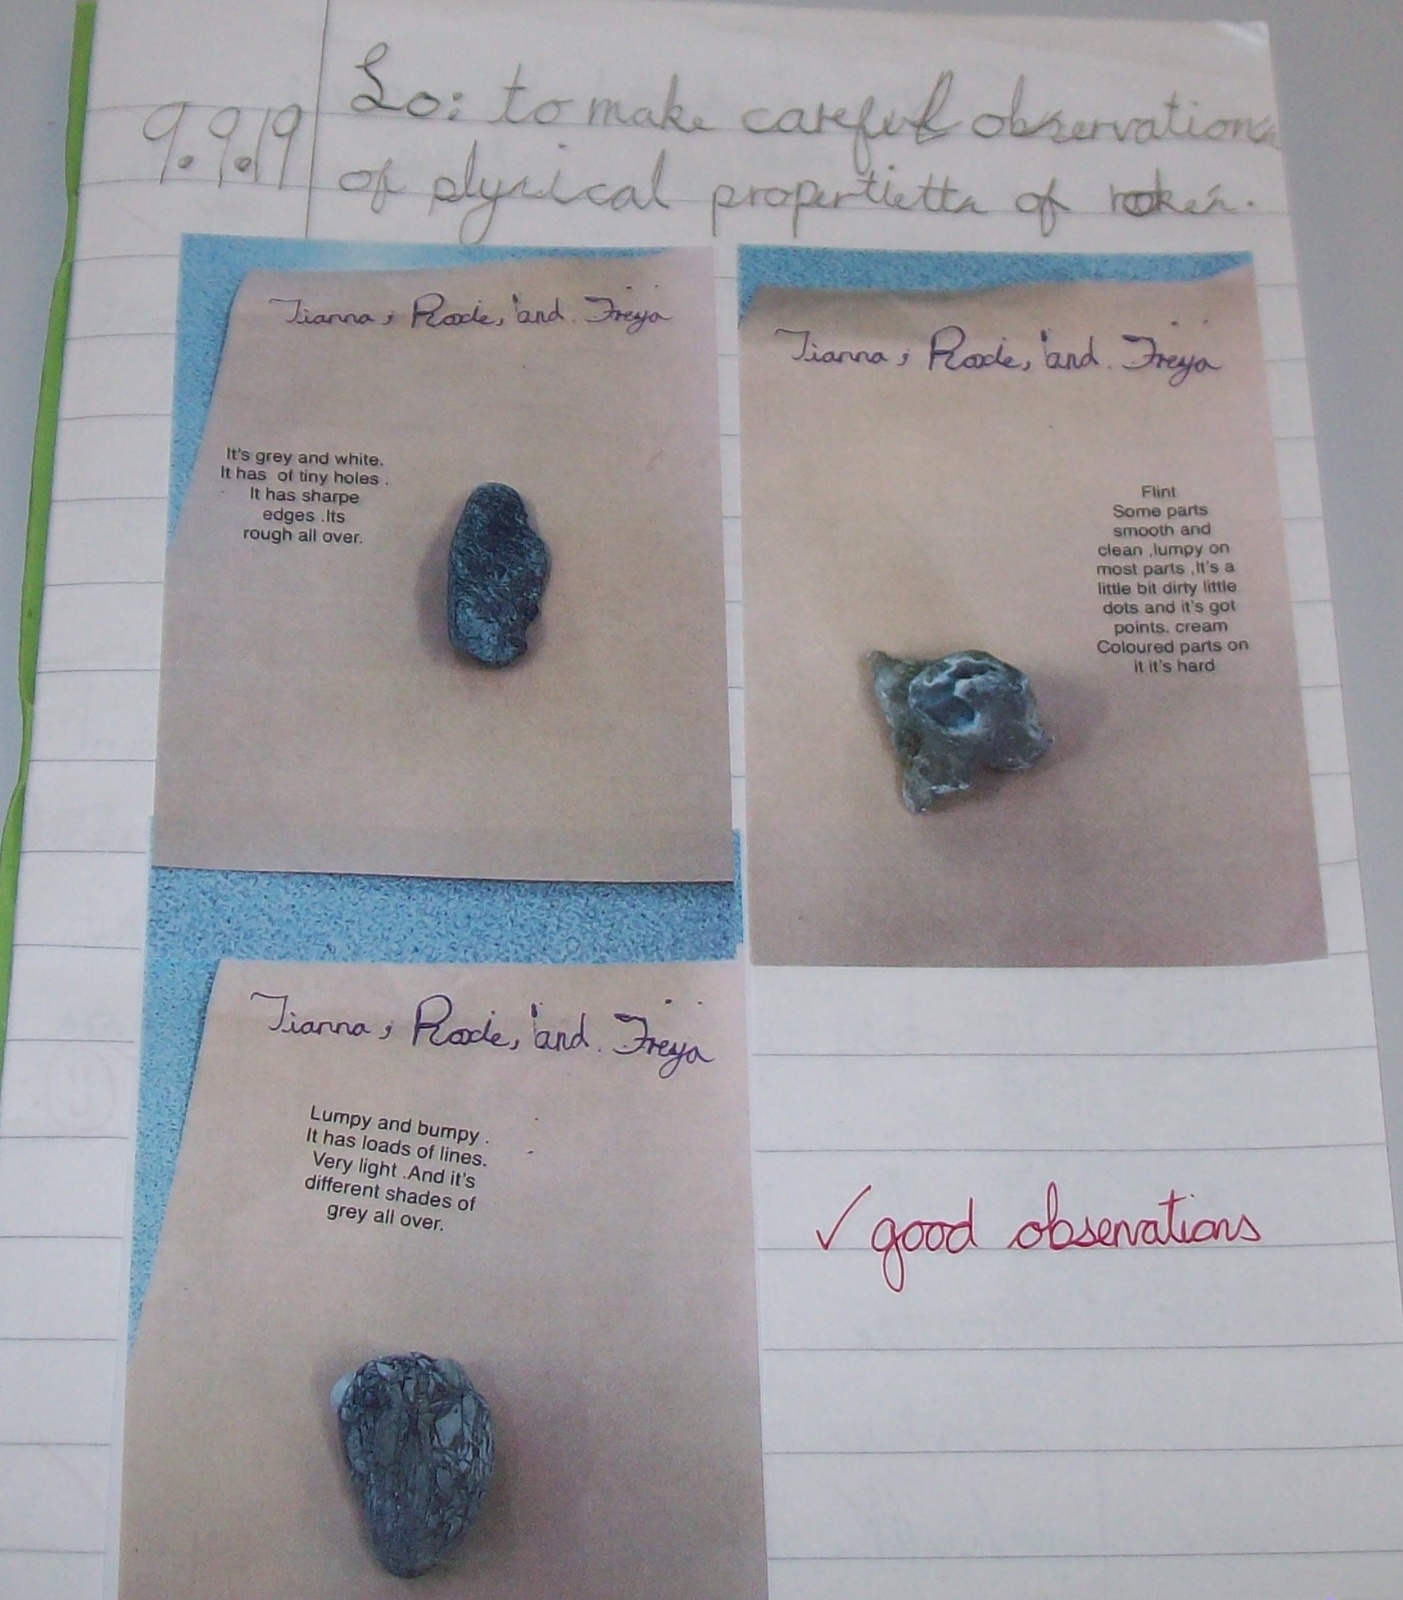 9.9.19
Lo: to make careful observations
of physical of
Tianna, and Freya
It's grey and white.
It has of tiny holes .
It has sharpe
edges .Its
rough all over.
Tianna, and Freya
Flint
Some parts
smooth and
clean ,lumpy on
most parts ,It's a
little bit dirty little
dots and it's got
points. cream
Coloured parts on
it it's hard
Tianna, and Freya
Lumpy and bumpy .
It has loads of lines.
Very light .And it's
different shades of
grey all over.
✓ good observations